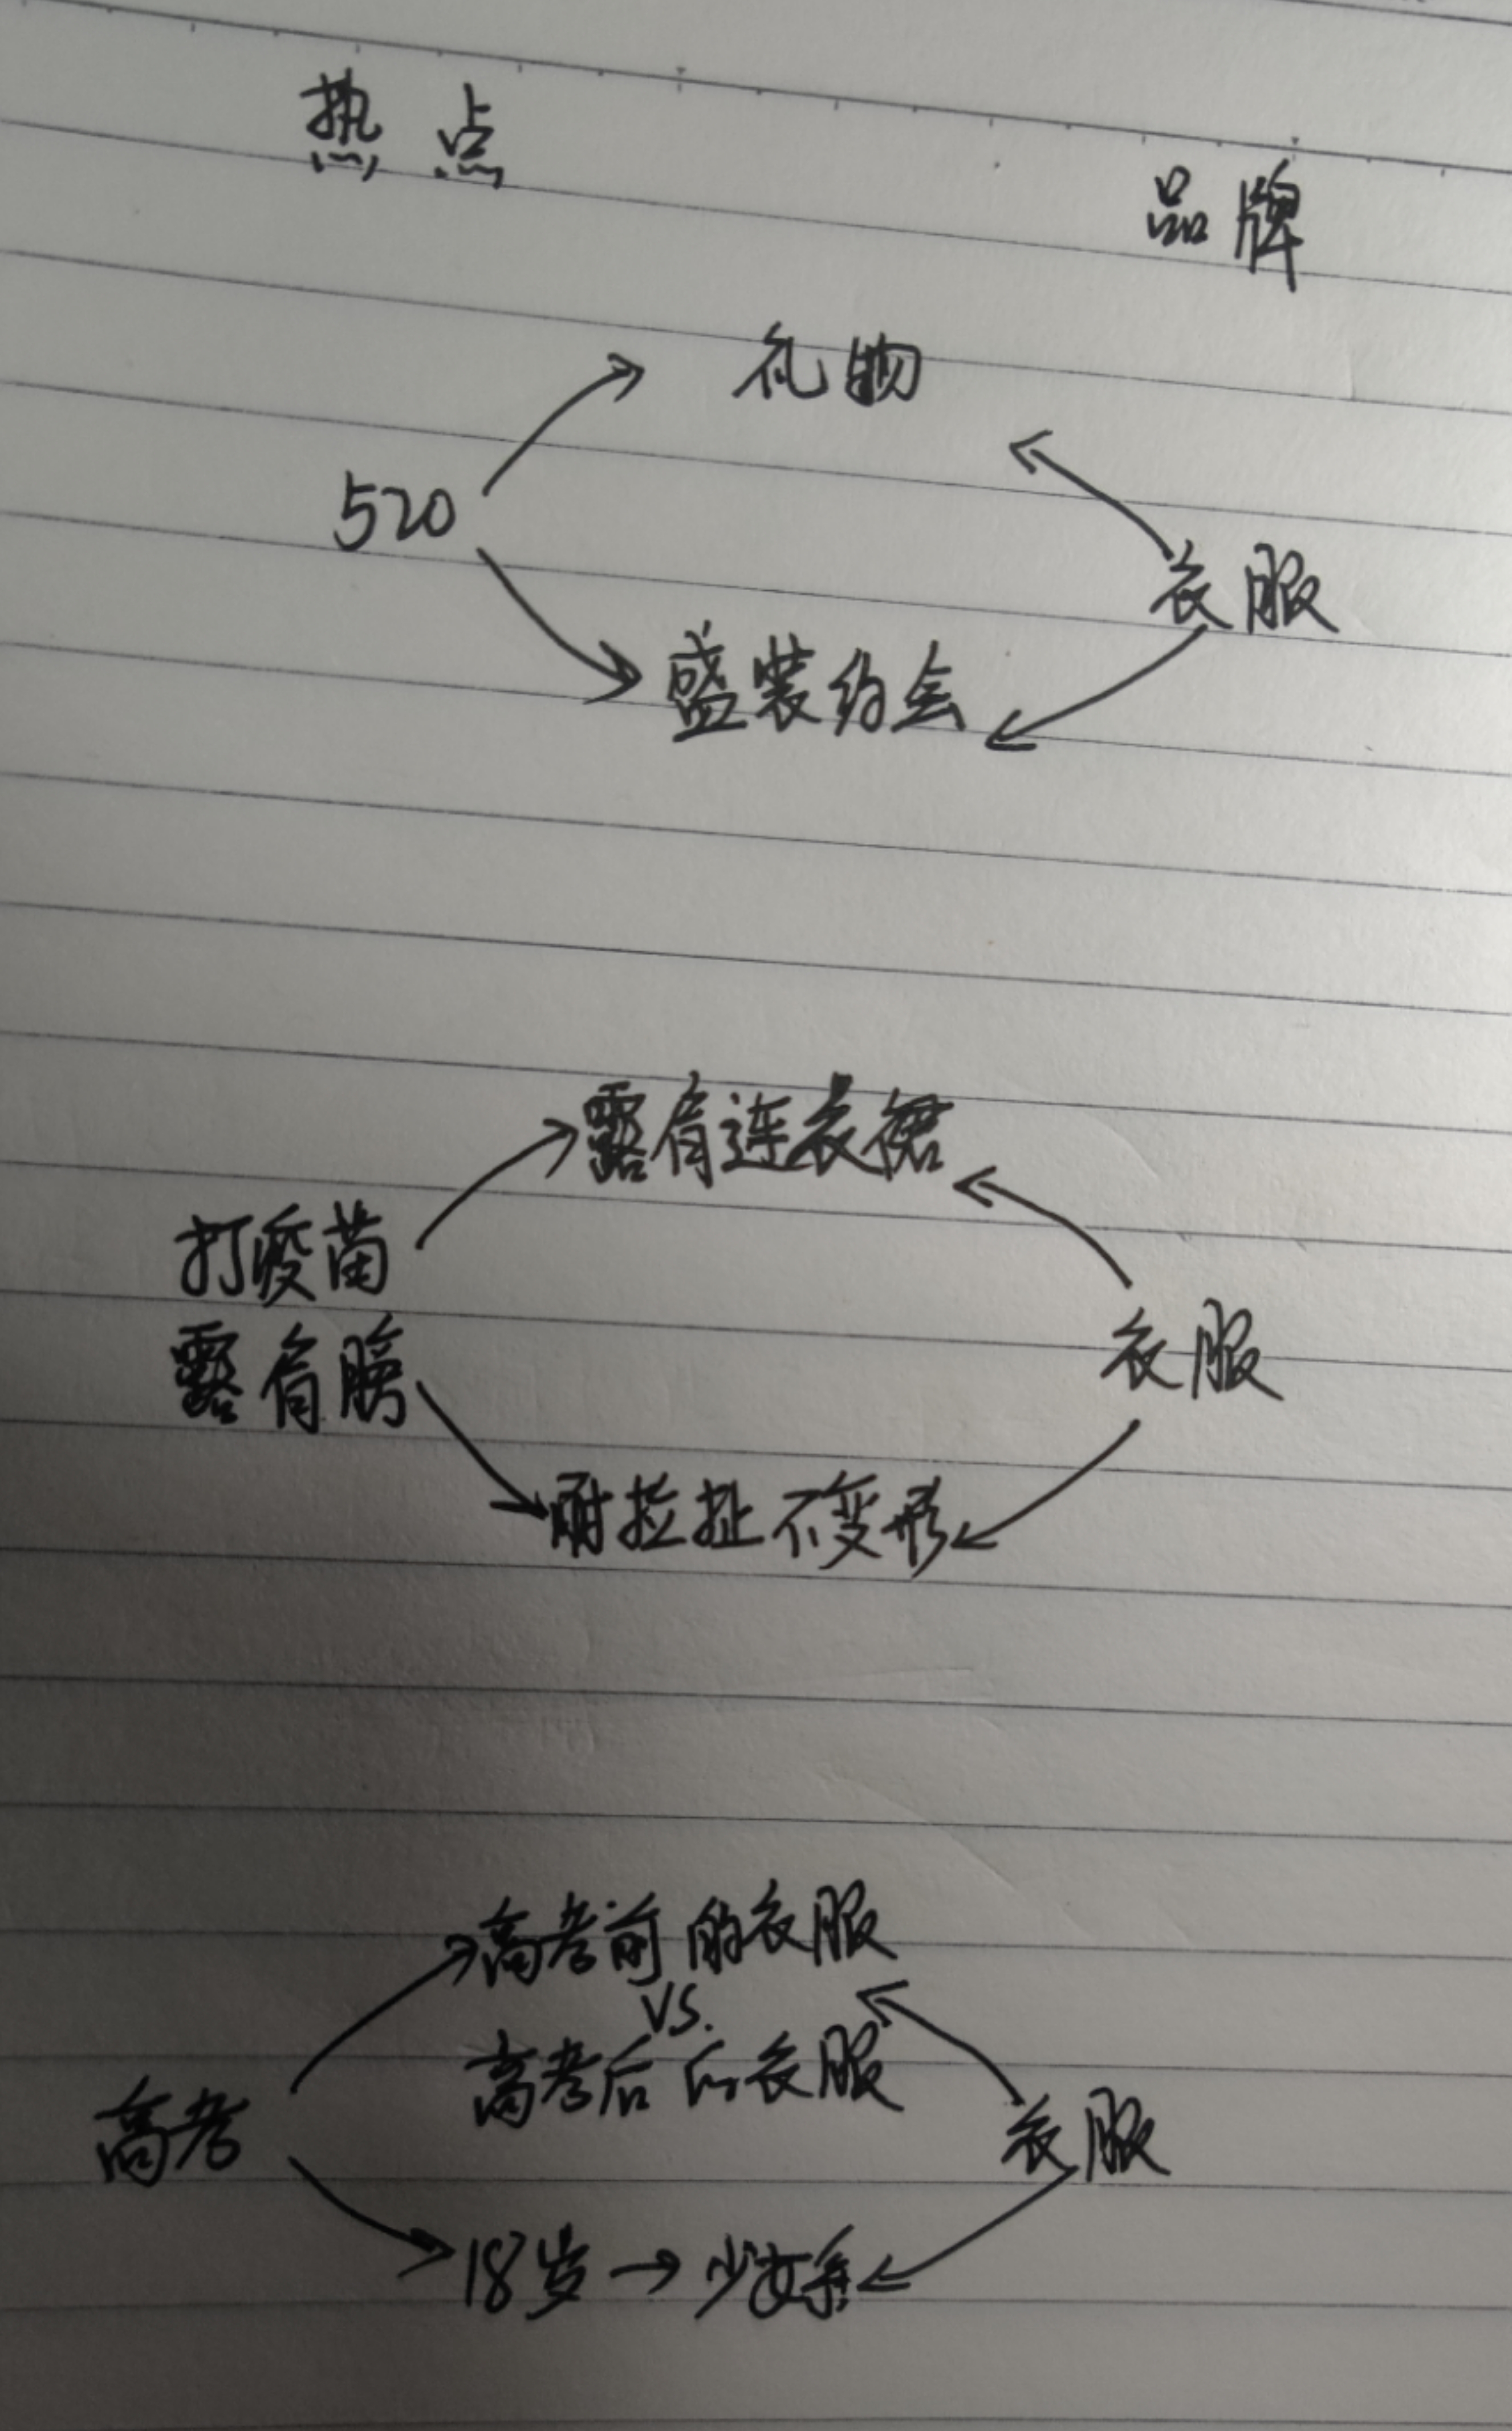 热点
品牌
礼物
520
衣服
盛装约会
露肩连衣裙
打疫苗
露肩膀
衣服
耐拉扯不变形
高考前的衣服
VS.
高考后的衣服
高考
衣服
18岁→少女系